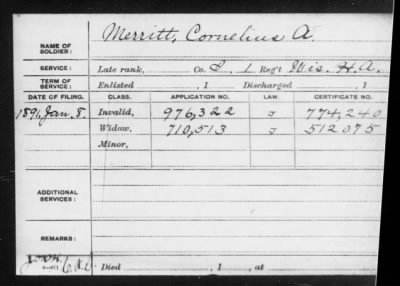 NAME OF SOLDIER: Merritt, Cornelius A.
SERVICE: Late rank, Co. I, 1 Reg't Wis. H.A.
TERM OF SERVICE: Enlisted , 1 Discharged , 1
DATE OF FILING. CLASS. APPLICATION NO. LAW. CERTIFICATE NO.
1891, Jan. 8. Invalid, 976,322 J 774,240
Widow, 710,513 J 512075
Minor,
ADDITIONAL SERVICES:
REMARKS:
Died , 1 , at